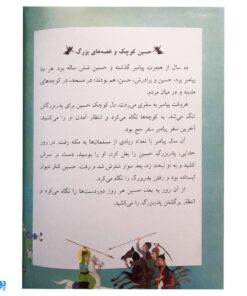 حسین کوچک و غصه‌های بزرگ
ده سال از هجرت پیامبر گذشته و حسین شش ساله بود. هر جا
پیامبر بود، حسین و برادرش، حسن، هم بودند؛ در مسجد، در کوچه‌های
مدینه و در میان مردم.
هروقت پیامبر به سفری می‌رفت، دل کوچک حسین برای پدربزرگش
تنگ می‌شد. به کوچه‌ها نگاه می‌کرد و انتظار آمدن او را می‌کشید.
آخرین سفر پیامبر سفر حج بود.
آن سال پیامبر با تعداد زیادی از مسلمان‌ها به مکه رفت. در روز
جدایی، پدربزرگ حسین را بغل کرد، او را بوسید، دست بر سرش
کشید و به او لبخند زد. بعد سوار شترش شد و رفت. حسین کنار دیوار
ایستاده بود و رفتن پدربزرگ را نگاه می‌کرد.
از آن روز به بعد، حسین هر روز دوردست‌ها را نگاه می‌کرد و
انتظار برگشتن پدربزرگ را می‌کشید.